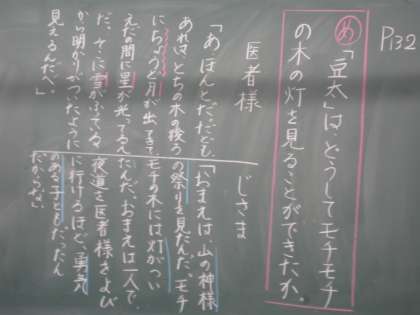 P132
め「豆太」は、どうしてモチモチ
の木の灯を見ることができたか。
医者様
「あ、ほんとだ。だども、
あれは、とちの木の後ろ
にちょうど月が出てきて、
えだの間に星が光ってるん
だ。そこに雪がふっている
から、明かりがついたように
見えるんだべ。」
じさま
「おまえは、山の神様
の祭りを見たんだ。モチ
モチの木には灯がつい
たんだ。おまえは一人で、
夜道を医者様をよび
に行けるほど、勇気
のある子どもだったん
だからな。」